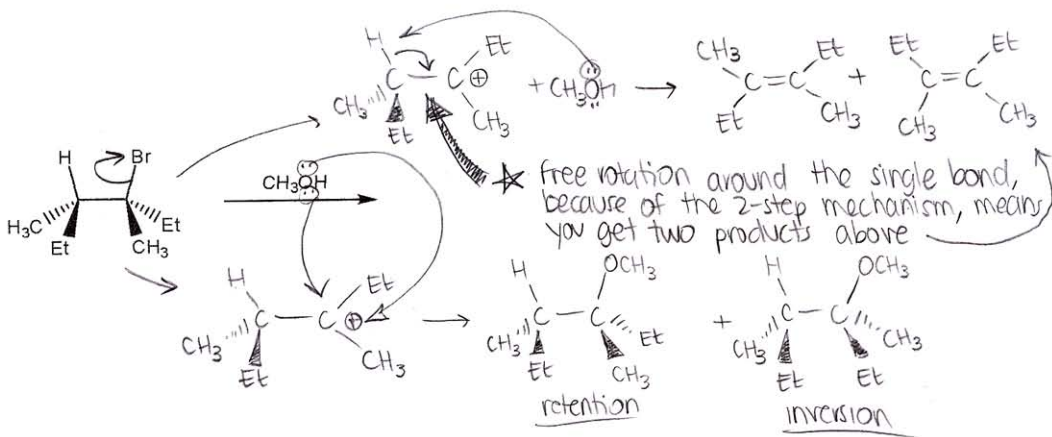 H
Et
C — C ⊕
CH₃
Et
CH₃
+ CH₃ÖH →
CH₃
Et
C=C
Et
CH₃
+
Et
Et
C=C
CH₃
CH₃
H
Br
H₃C
Et
Et
CH₃
CH₃OH
★ free rotation around the single bond,
because of the 2-step mechanism, means
you get two products above
H
Et
C — C ⊕
CH₃
Et
CH₃
H
OCH₃
C — C
CH₃
Et
Et
CH₃
retention
+
H
OCH₃
C — C
CH₃
CH₃
Et
Et
inversion